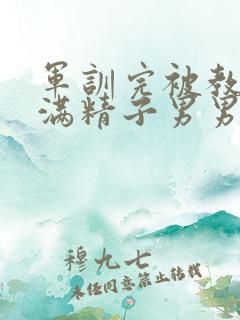 軍訓完被教
滿精子男男
穆九七
未经同意禁止转载